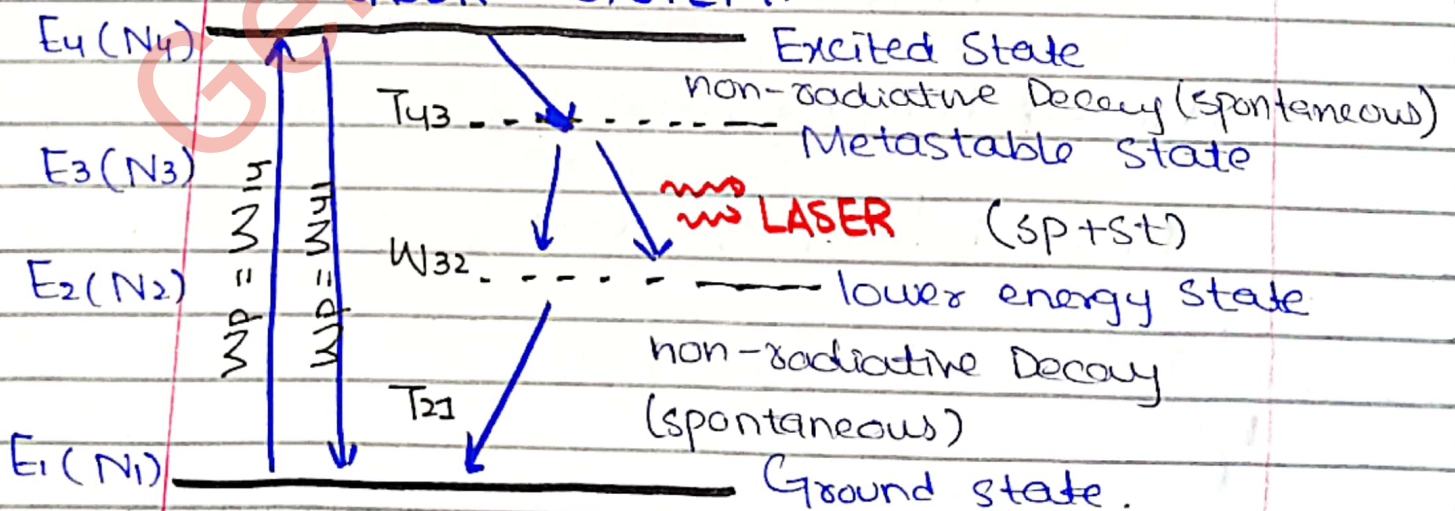 E4 (N4)
Excited State
non-radiative Decay (spontaneous)
T43
Metastable State
E3 (N3)
Wp = W14
Wp = W41
LASER
(sp+st)
W32
E2 (N2)
lower energy State
non-radiative Decay
(spontaneous)
T21
E1 (N1)
Ground state.